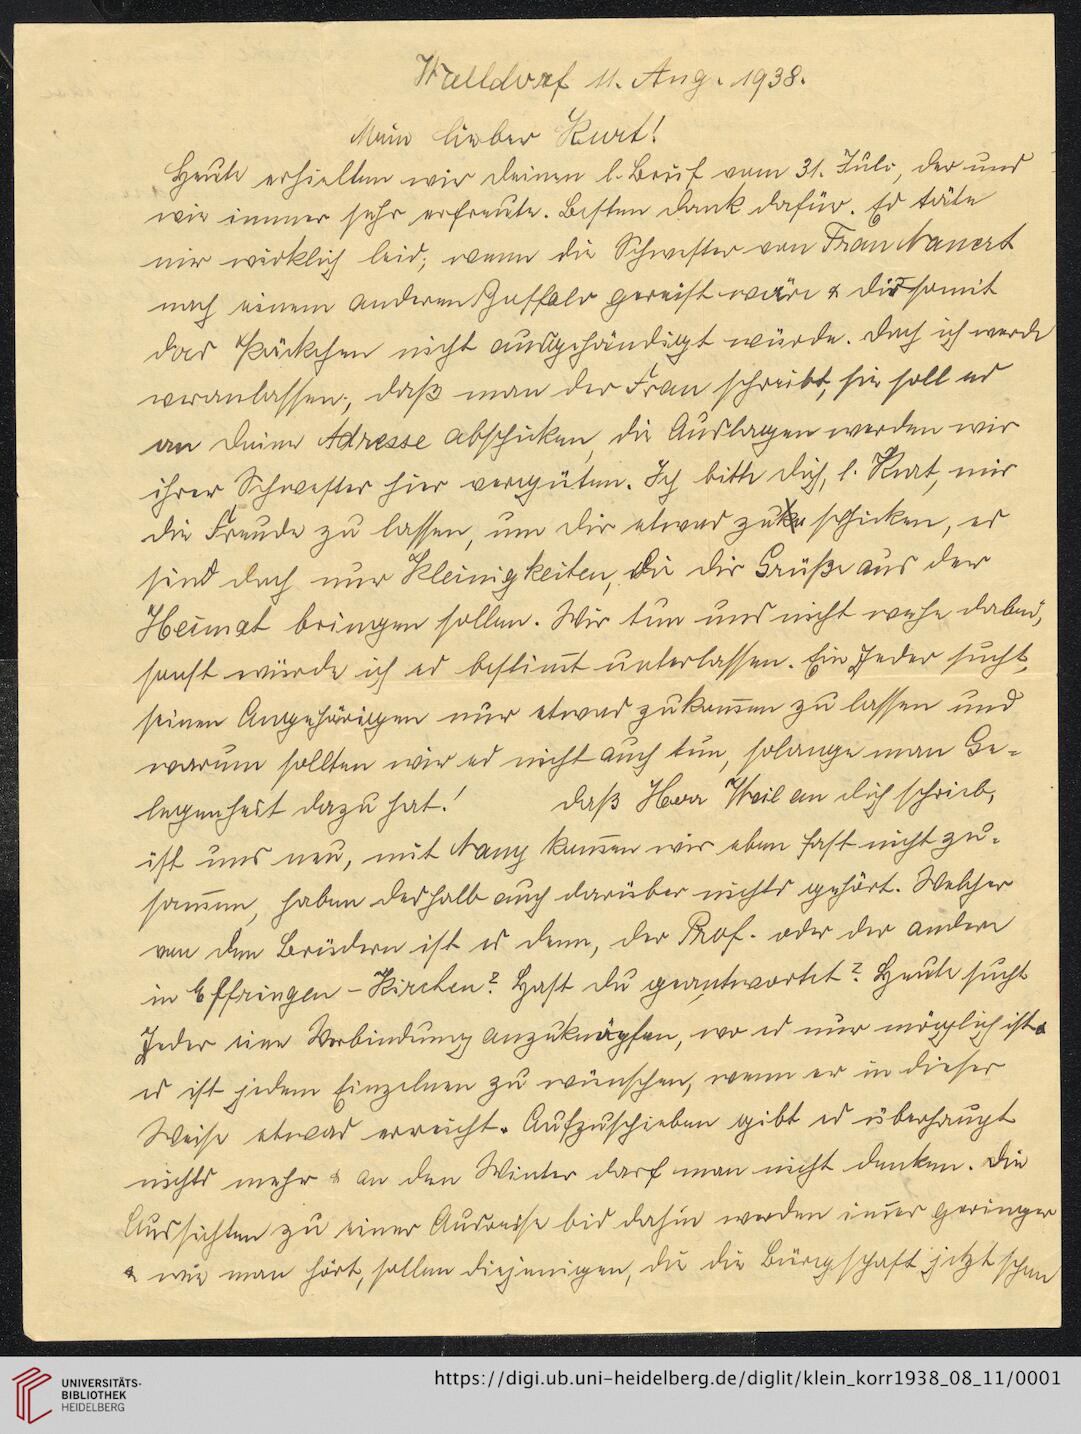 Walldorf 11. Aug. 1938.
Mein lieber Kurt!
Heute erhielten wir deinen l. Brief vom 31. Juli, der uns
wie immer sehr erfreute. Besten Dank dafür. Es täte
mir wirklich leid, wenn die Schwester von Frau Nanert
nach einem anderen Buffalo gereist wäre & dir somit
das Päckchen nicht ausgehändigt würde. Doch ich werde
veranlassen, daß man der Frau schreibt, sie soll es
an deine Adresse abschicken, die Auslagen werden wir
ihrer Schwester hier vergüten. Ich bitte dich, l. Kurt, mir
die Freude zu lassen, um dir etwas zu schicken, es
sind doch nur Kleinigkeiten, die dir Grüße aus der
Heimat bringen sollen. Wir tun uns nicht wehe dabei,
sonst würde ich es bestimt unterlassen. Ein Jeder sucht,
seinen Angehörigen nur etwas zukomen zu lassen und
warum sollten wir es nicht auch tun, solange man Ge-
legenheit dazu hat! daß Herr Weil an dich schrieb,
ist uns neu, mit Nany komen wir eben fast nicht zu-
samen, haben deshalb auch darüber nichts gehört. Welcher
von den Brüdern ist es denn, der Prof. oder der andere
in Effringen-Kirchen? Hast du geantwortet? Heute sucht
Jeder eine Verbindung anzuknüpfen, wo es nur möglich ist &
es ist jedem Einzelnen zu wünschen, wenn er in dieser
Weise etwas erreicht. Aufzuschieben gibt es überhaupt
nichts mehr & an den Winter darf man nicht denken. Die
Aussichten zu einer Ausreise bis dahin werden imer geringer
& wie man hört, sollen diejenigen, die die Bürgschaft jetzt schon
UNIVERSITÄTS-
BIBLIOTHEK
HEIDELBERG
https://digi.ub.uni-heidelberg.de/diglit/klein_korr1938_08_11/0001